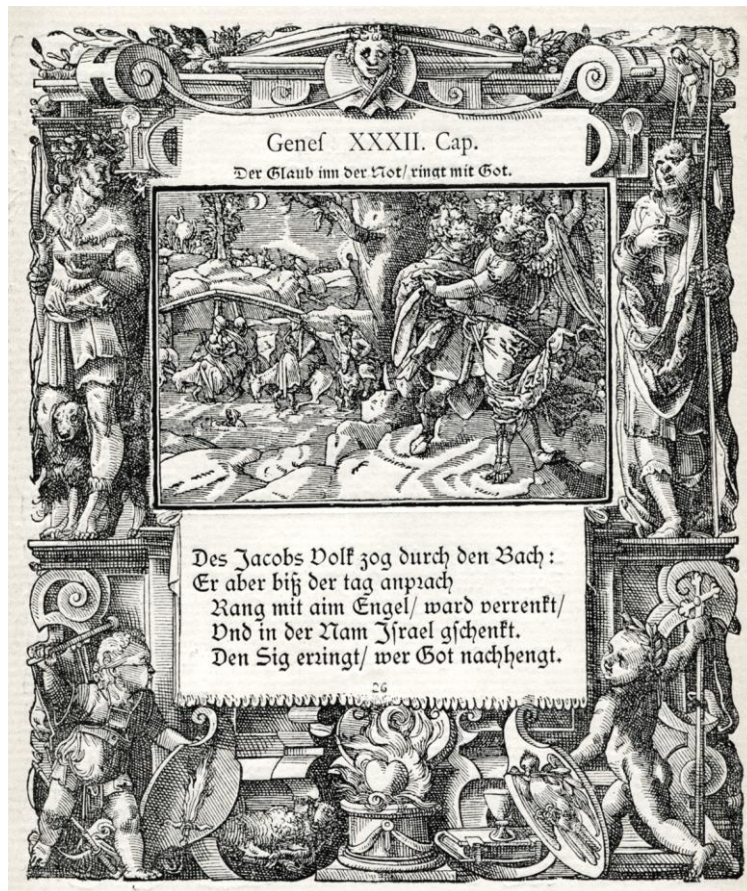 Geneſ XXXII. Cap.
Der Glaub inn der Not/ ringt mit Got.
Des Jacobs Volk zog durch den Bach:
Er aber biß der tag anprach
Rang mit aim Engel/ ward verrenkt/
Vnd in der Nam Jſrael gſchenkt.
Den Sig erringt/ wer Got nachhengt.
26